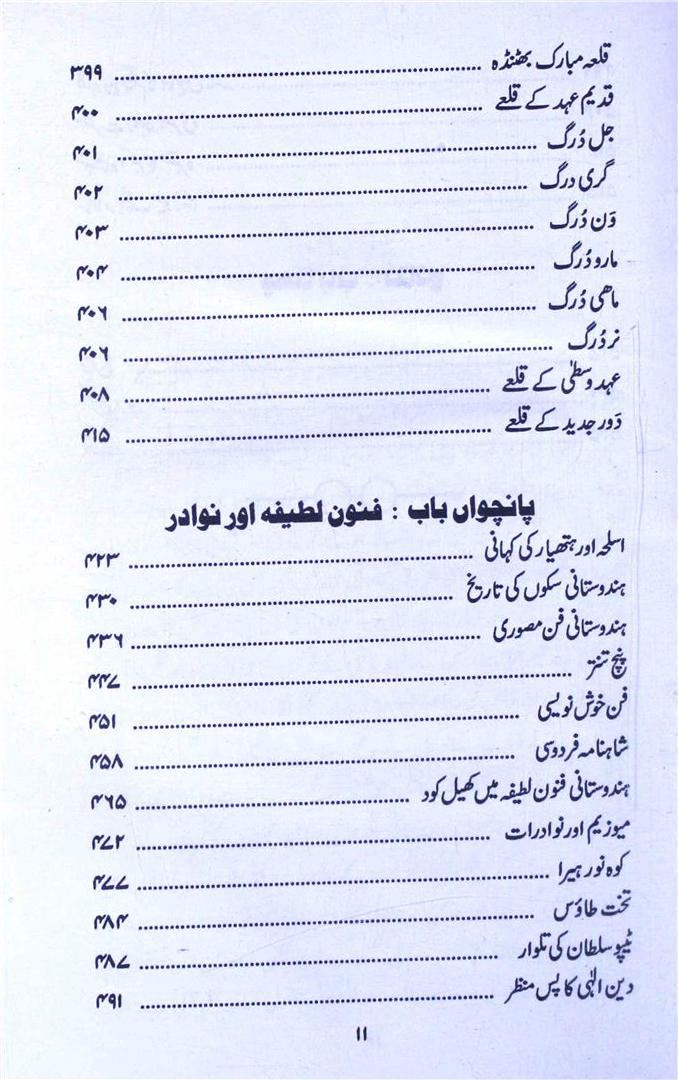 قلعہ مبارک بھٹنڈہ ........ ۳۹۹
قدیم عہد کے قلعے ........ ۴۰۰
جل دُرگ ........ ۴۰۱
گری درگ ........ ۴۰۲
وَن دُرگ ........ ۴۰۳
مارو دُرگ ........ ۴۰۴
ماھی دُرگ ........ ۴۰۶
نر دُرگ ........ ۴۰۶
عہد وسطیٰ کے قلعے ........ ۴۰۸
دَور جدید کے قلعے ........ ۴۱۵
پانچواں باب : فنون لطیفہ اور نوادر
اسلحہ اور ہتھیار کی کہانی ........ ۴۲۳
ہندوستانی سکوں کی تاریخ ........ ۴۳۰
ہندوستانی فن مصوری ........ ۴۳۶
پنچ تنتر ........ ۴۴۷
فن خوش نویسی ........ ۴۵۱
شاہنامہ فردوسی ........ ۴۵۸
ہندوستانی فنون لطیفہ میں کھیل کود ........ ۴۶۵
میوزیم اور نوادرات ........ ۴۷۲
کوہ نور ہیرا ........ ۴۷۷
تخت طاؤس ........ ۴۸۴
ٹیپو سلطان کی تلوار ........ ۴۸۷
دین الٰہی کا پس منظر ........ ۴۹۱
۱۱